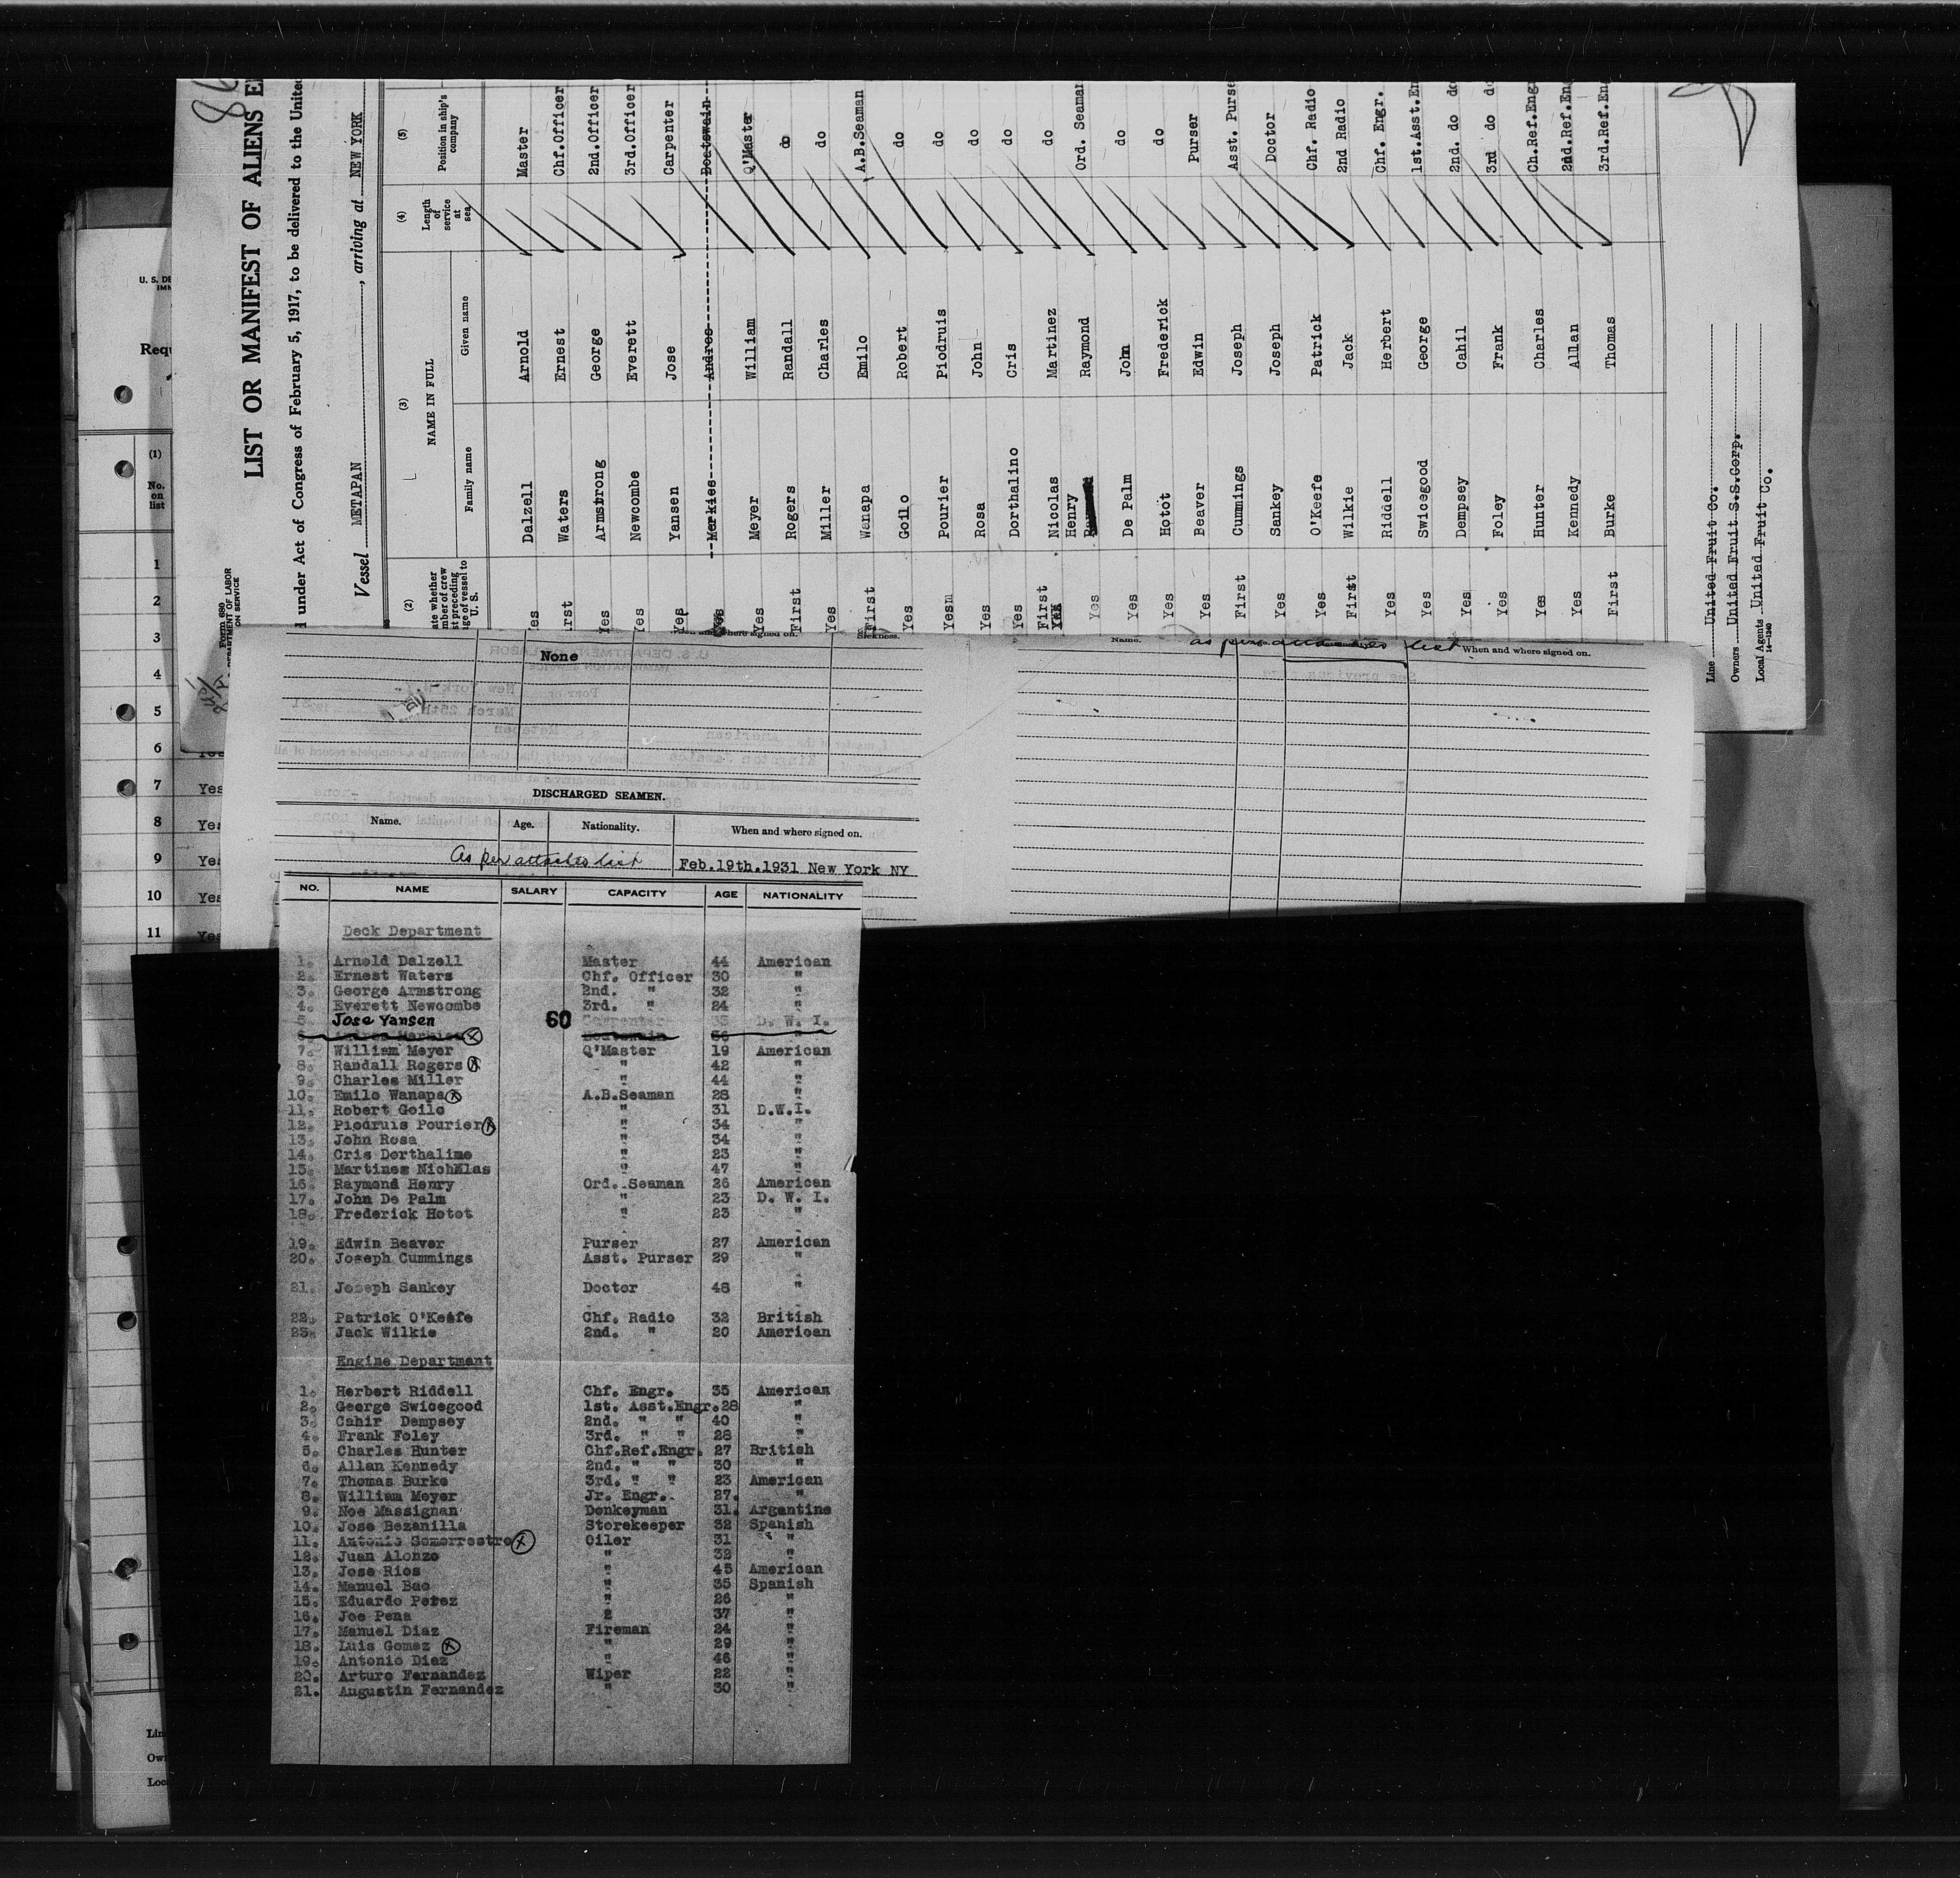 LIST OR MANIFEST OF ALIENS
under Act of Congress of February 5, 1917, to be delivered to the United
Vessel METAPAN, arriving at NEW YORK
(2) (3) (4) (5)
NAME IN FULL
Family name Given name Length of service at sea Position in ship's company
Yes Dalzell Arnold Master
Waters Ernest Chf.Officer
Yes Armstrong George 2nd.Officer
Yes Newcombe Everett 3rd.Officer
Yes Yansen Jose Carpenter
Yes Merkies Andres Boatswain
Yes Meyer William Q'Master
First Rogers Randall do
Yes Miller Charles do
First Wanapa Emilo A.B.Seaman
Yes Goilo Robert do
Yes Pourier Piodruis do
Yes Rosa John do
Yes Dorthalino Cris do
First Nicolas Martinez do
Yes Henry Raymond Ord. Seaman
Yes De Palm John do
Yes Hotot Frederick do
Yes Beaver Edwin Purser
First Cummings Joseph Asst. Purse
Yes Sankey Joseph Doctor
Yes O'Keefe Patrick Chf. Radio
First Wilkie Jack 2nd Radio
Yes Riddell Herbert Chf. Engr.
Yes Swicegood George 1st.Asst.En
Yes Dempsey Cahil 2nd. do do
Yes Foley Frank 3rd do do
Yes Hunter Charles Ch.Ref.Eng
Yes Kennedy Allan 2nd.Ref.En
First Burke Thomas 3rd.Ref.En
Line United Fruit Co.
Owners United Fruit S.S.Corp.
Local Agents United Fruit Co.
14-1240
Form 680
DEPARTMENT OF LABOR
ON SERVICE
U. S. DE
Requ
(1)
No. on list
1
2
3
4
5
6
7 Yes
8 Yes
9 Yes
10 Yes
11 Yes
Sickness.
None
Name. as per attaches list When and where signed on.
DISCHARGED SEAMEN.
Name. Age. Nationality. When and where signed on.
As per attaches list Feb.19th.1931 New York NY
NO. NAME SALARY CAPACITY AGE NATIONALITY
Deck Department
1. Arnold Dalzell Master 44 American
2. Ernest Waters Chf. Officer 30 "
3. George Armstrong 2nd. " 32 "
4. Everett Newcombe 3rd. " 24 "
5. Jose Yansen 60 Carpenter 35 D. W. I.
6. Andres Merkies Boatswain 36 "
7. William Meyer Q'Master 19 American
8. Randall Rogers " 42 "
9. Charles Miller " 44 "
10. Emilo Wanapa A.B.Seaman 28 "
11. Robert Goilo " 31 D.W.I.
12. Piodruis Pourier " 34 "
13. John Rosa " 34 "
14. Cris Dorthalino " 23 "
15. Martines Nichelas " 47 "
16. Raymond Henry Ord. Seaman 26 American
17. John De Palm " 23 D. W. I.
18. Frederick Hotot " 23 "
19. Edwin Beaver Purser 27 American
20. Joseph Cummings Asst. Purser 29 "
21. Joseph Sankey Doctor 48 "
22. Patrick O'Keefe Chf. Radio 32 British
23. Jack Wilkie 2nd. " 20 American
Engine Department
1. Herbert Riddell Chf. Engr. 35 American
2. George Swicegood 1st. Asst.Engr. 28 "
3. Cahir Dempsey 2nd. " " 40 "
4. Frank Foley 3rd. " " 28 "
5. Charles Hunter Chf.Ref.Engr. 27 British
6. Allan Kennedy 2nd. " " 30 "
7. Thomas Burke 3rd. " " 23 American
8. William Meyer Jr. Engr. 27. "
9. Noe Massignan Donkeyman 31. Argantine
10. Jose Bezanilla Storekeeper 32 Spanish
11. Antonio Somorrestro Oiler 31 "
12. Juan Alonzo " 32 "
13. Jose Rios " 45 American
14. Manuel Bao " 35 Spanish
15. Eduardo Perez " 26 "
16. Joe Pena " 37 "
17. Manuel Diaz Fireman 24 "
18. Luis Gomez " 29 "
19. Antonio Diaz " 46 "
20. Arturo Fernandez Wiper 22 "
21. Augustin Fernandez " 30 "